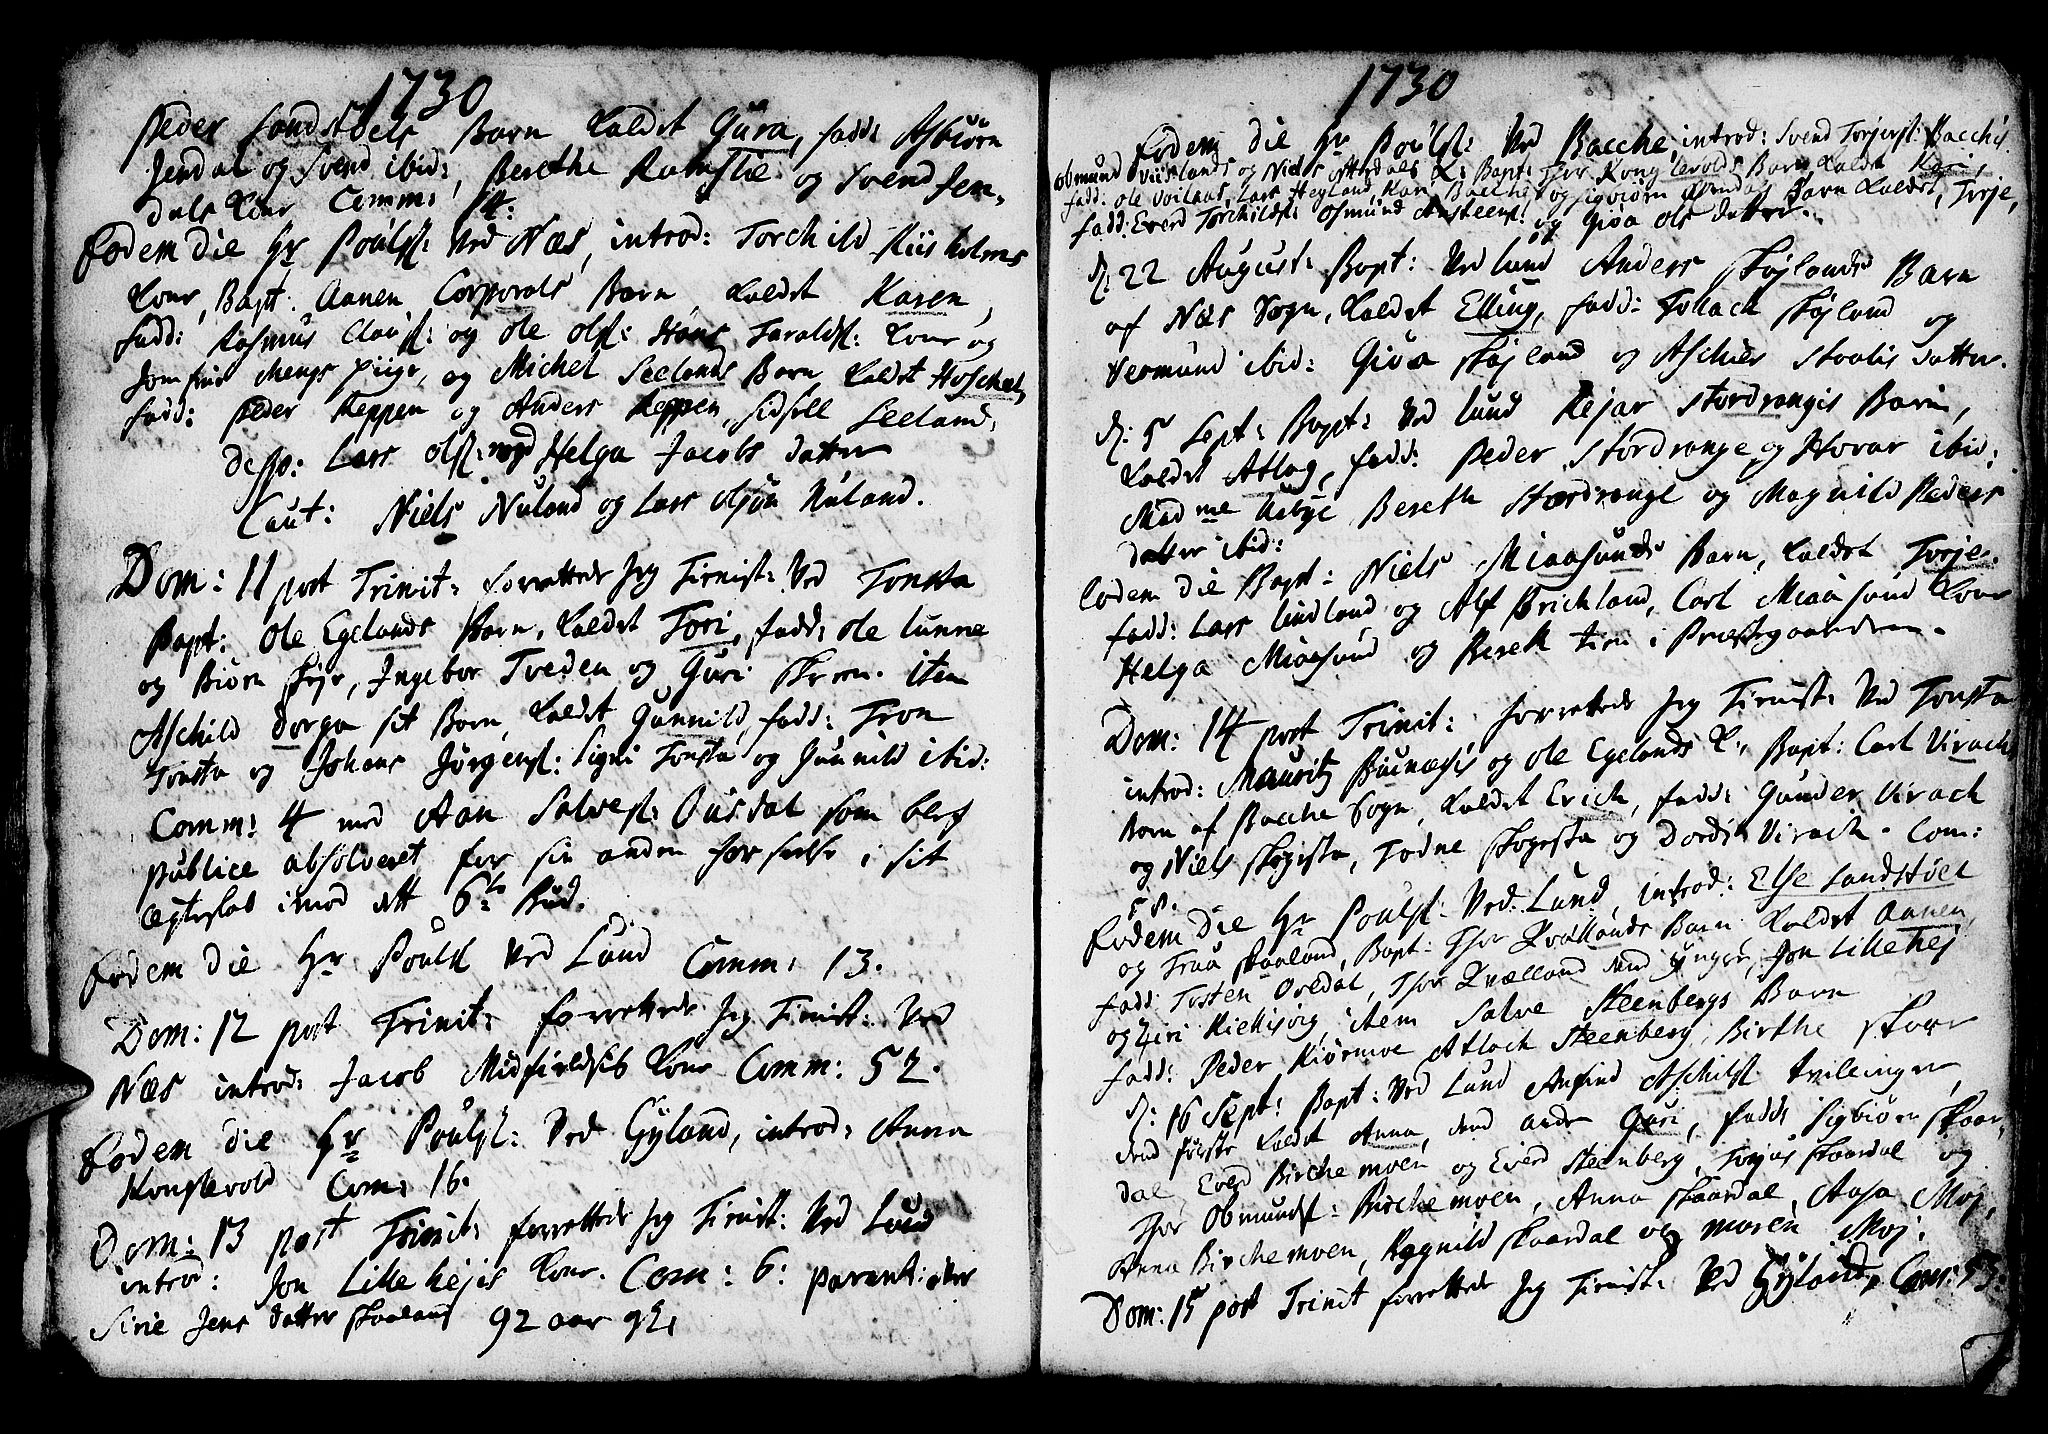 1730
Peder Landstöels Barn Kaldet Gúra, fadd: Asbiörn
Jendal og Svend ibid:, Berethe og Svend Jen-
dals Kone Comm: 14:
Eodem die Hr Poúlss: Ved Næs, introd: Torchild Kiisholms
Kone, Bapt: Aanen Corporals Barn Kaldet Karen,
fadd: Rasmus Claúss: og Ole Olss: Haralds: Kone og
Jomfrue Pige, og Michel Seelands Barn Kaldet
fadd: Peder Keppen og Anders Keppen, Sidsell Seeland,
desp: Lars Olss: med Helga Jacobs datter
Caut: Niels Nuland og Lars Olsön Núland.
Dom: 11 post Trinit: forrettede Jeg Tieniste Ved Tonsta
Bapt: Ole Egelands Barn, Kaldet Tori, fadd: Ole Lunne
og Biörn, Ingebor Tveden og Guri Skreen. Item
Aschild Dorga sit Barn, Kaldet Gunnild, fadd: Tron
Tonsta og Johans Jörgenss: Signi Tonsta og Gunnild ibid:
Comm: 4 med Aan Salvess: Oúsdal som blef
publice absolveret for sin anden forseelse i sit
Egteskab imod dett 6te Bud.
Eodem die Hr Poúlss Ved Lúnd Comm: 13.
Dom: 12 post Trinit: forrettede Jeg Tienist: Ved
Næs introd: Jacob Midfieldsib Kone Comm: 52.
Eodem die Hr Poúlss: Ved Gyland, introd: Anna
Konglevold Com: 16.
Dom: 13 post Trinit: forrettede Jeg Tienist: Ved Lúnd
introd: Jon Lillehejes Kone. Com: 6: parent: over
Sirie Jens datter Skaaland 92 aar gl:
1730
Eodem die Hr Poúlss: Ved Bacche, introd: Svend Torjerss: Bacchis
Obmund og Niels K: Bapt: Konglevolds Barn Kaldet Kari,
fadd: Ole, Lars Hegland, Kari Bacche og Sigbiörn Barn Kaldet, Torje,
fadd: Everd Torchildss: Osmund og Giöa Ols datter.
d: 22 August: Bapt: Ved Lund Anders Skojlands Barn
af Næs Sogn, Kaldet Elling, fadd: Tollach Skojland og
Vermund ibid: Giöa Skojland og Aschier datter.
d: 5 Sept: Bapt: Ved Lund Rejar Stordrangis Barn,
Kaldet Atlag, fadd: Peder Stordrange og Hovar ibid:
Madme Bereth Stordrange og Magnild Peders
datter ibid:
Eodem die Bapt: Niels Miaasunds Barn, Kaldet Torje.
fadd: Lars Lindland og Alf Birchland, Carl Miaasund Kone
Helga Miaasund og i Præstegaarden.
Dom: 14 post Trinit: forrettede Jeg Tienist: Ved Tonsta
introd: Mauritz og Ole Egelands K:, Bapt: Carl Virachs
Barn af Bacche Sogn, Kaldet Erich, fadd: Gunder Virach
og Niels Skogista, Todne Skogesta og Dordi Virach. Com:
58.
Eodem Die Hr Poulss: Ved Lund, introd: Else Landstöel
og Traa Skaaland, Bapt: Thor Qvællands Barn Kaldet Aanen,
fadd: Torsten Ovedal, Thor Kvælland dend Yngre, Jon Lillehej
og Ziri, Item Salve Steenbergs Barn
fadd: Peder Kiörmoe Atlach Steenberg, Birthe
d: 16 Sept: Bapt: Ved Lund Anfind Aschilss tvilinger,
dend förste Kaldet Anna, dend anden Guri, fadd: Sigbiörn Skaar-
dal Everd Birchemoen og Everd Steenberg, Torjus Skaardal og
Thor Obmundss: Birchemoen, Anna Skaardal, Aasa Moj,
Anna Birchemoen, Ragnild Skaardal og Maren Moj:
Dom: 15 post Trinit forrettede Jeg Tienist: Ved Gyland, Com: 53.